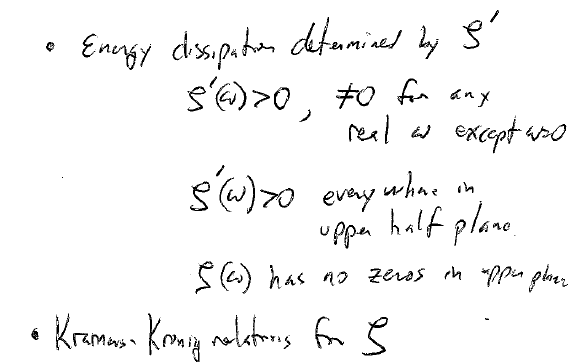 • Energy dissipation determined by ζ'
ζ'(ω)>0, ≠0 for any
real ω except ω=0
ζ'(ω)>0 everywhere in
upper half plane.
ζ(ω) has no zeros in upper plane
• Kramers-Kronig relations for ζ